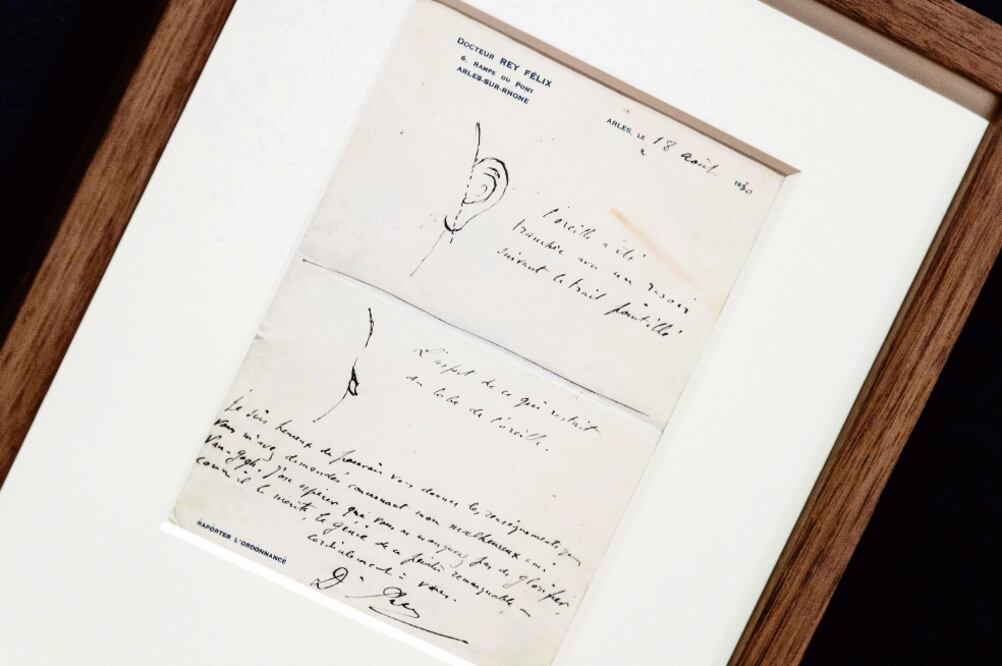 DOCTEUR REY FÉLIX
6, RAMPE DU PONT
ARLES-SUR-RHONE
ARLES, LE 18 août 1930
l'oreille a été
tranchée avec un rasoir
suivant le trait pointillé
L'aspect de ce qui restait
du lobe de l'oreille.
Je suis heureux de pouvoir vous donner les renseignements que
vous m'avez demandés concernant mon malheureux ami
Van-Gogh. J'ose espérer que vous ne manquerez pas de glorifier
comme il le mérite, le génie de ce peintre remarquable,
Cordialement à vous.
Dr Rey
RAPORTER L'ORDONNANCE